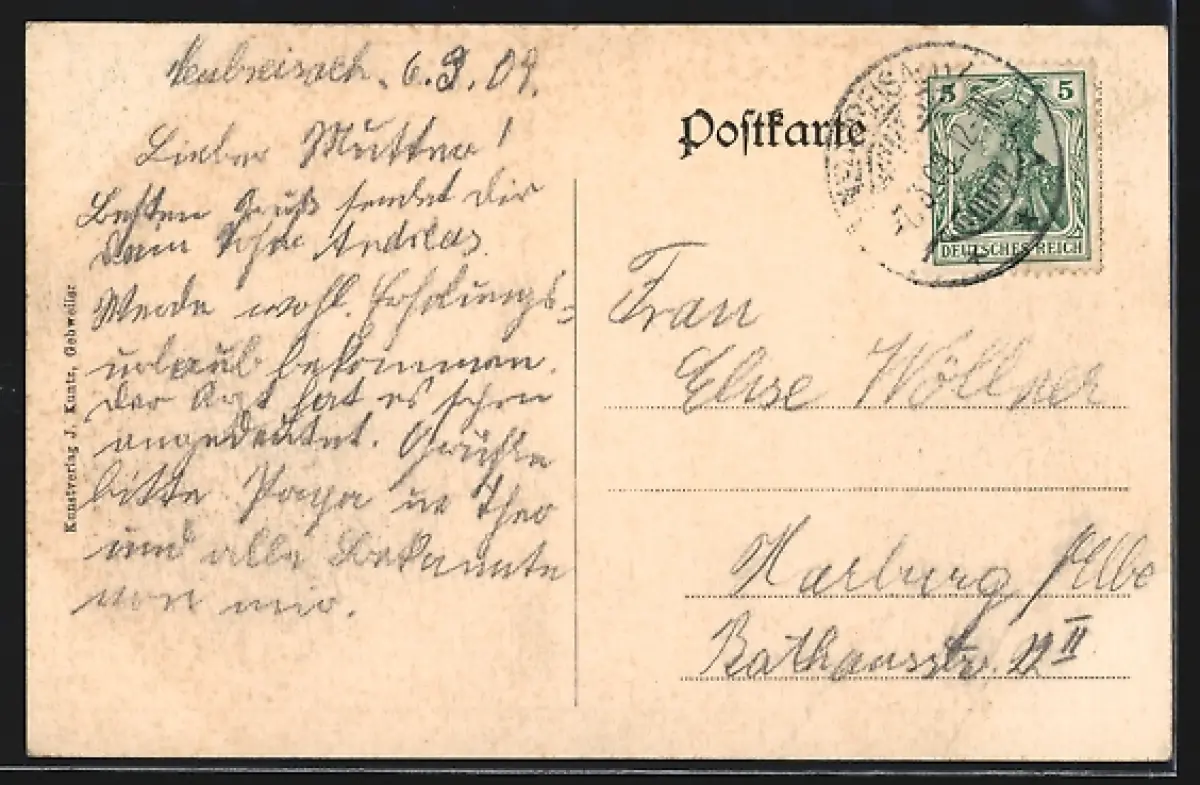 Neubreisach. 6.3.09.
Liebe Mutter!
Besten Gruß sendet dir
dein Sohn Andreas.
Werde wohl Erholungs-
urlaub bekommen.
der Arzt hat es schon
angedeutet. Grüße
bitte Papa u Theo
und alle Bekannte
von mir.
Kunstverlag J. Kuntz, Gebweiler
Postkarte
5 5
DEUTSCHES REICH
Frau
Elise Wöllner
Harburg / Elbe
Rathausstr. 22 II